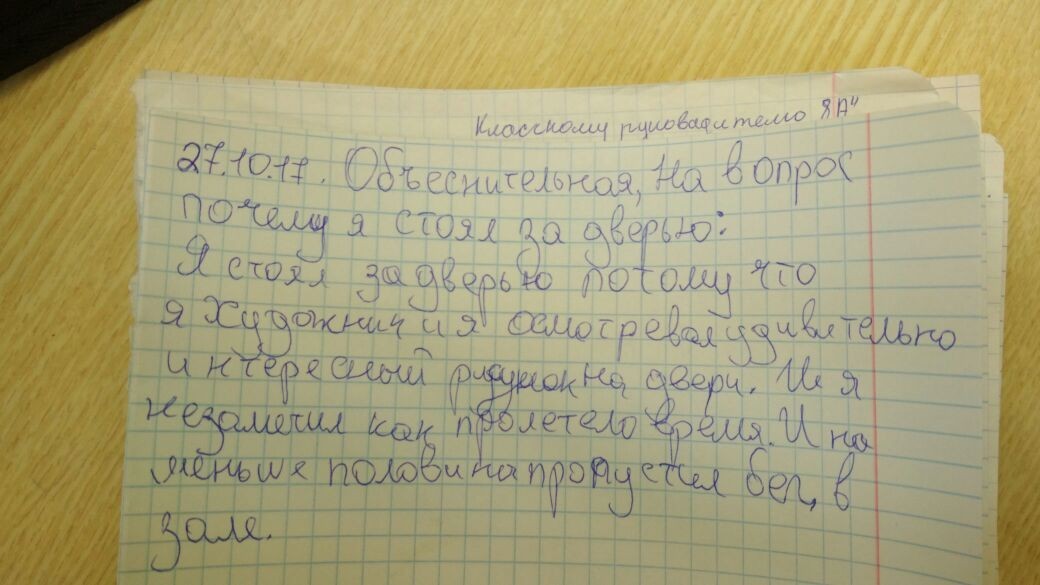 Классному руководителю 8"А"
27.10.17. Объеснительная, На вопрос
почему я стоял за дверью:
Я стоял за дверью потому что
я художник и я осмотревал удивительно
интересный рисунок на двери. И я
незаметил как пролетело время. И на
меньше половина пропустил бег, в
зале.